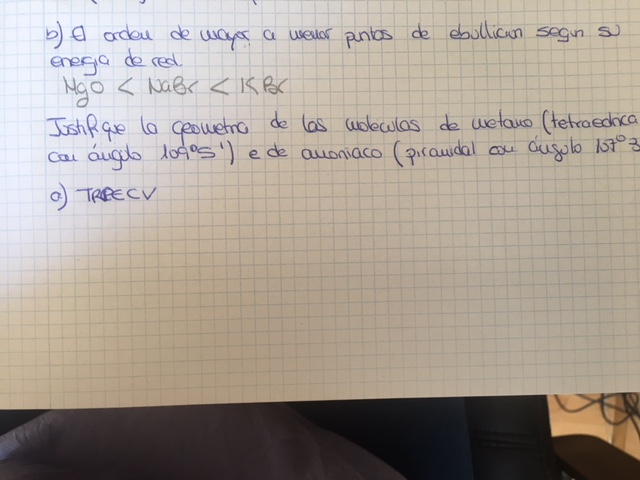 b) El orden de mayor a menor puntos de ebullicion segun su
energia de red.
MgO < NaBr < KBr
Justifique la geometria de las moleculas de metano (tetraedrica
con ángulo 109º5') e de amoniaco (piramidal con ángulo 107º3
a) TRPECV